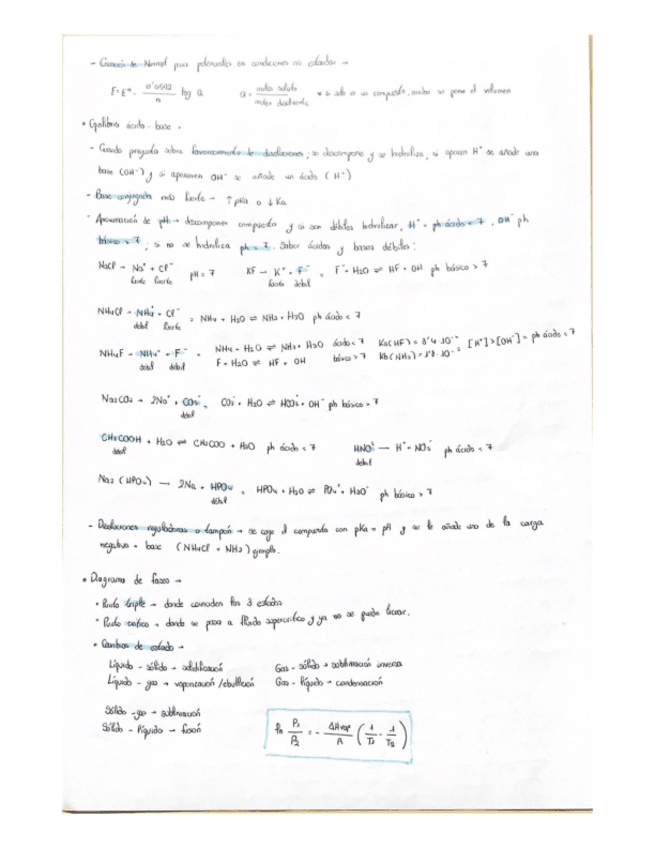 - Ecuación de Nernst para potenciales en condiciones no estándar →
E = E° - 0'0592/n log Q    Q = moles soluto/moles disolvente    * si solo es un compuesto, arriba se pone el volumen
• Equilibrio ácido-base →
- Cuando pregunta sobre favorecimiento de disoluciones, se descompone y se hidroliza, si aparecen H⁺ se añade una
base (OH⁻) y si aparecen OH⁻ se añade un ácido (H⁺)
- Base conjugada más fuerte → ↑pKa o ↓Ka
- Aproximación de pH → descomponer compuesto y si son débiles hidrolizar, H⁺ = ph ácido < 7, OH⁻ ph
básico > 7; si no se hidroliza ph = 7. Saber ácidos y bases débiles:
NaCl → Na⁺ + Cl⁻    pH = 7    KF → K⁺ + F⁻ = F⁻ + H₂O ⇌ HF + OH ph básico > 7
fuerte fuerte    fuerte débil
NH₄Cl → NH₄⁺ + Cl⁻ = NH₄ + H₂O ⇌ NH₃ + H₃O ph ácido < 7
débil fuerte
NH₄F → NH₄⁺ + F⁻ = NH₄ + H₂O ⇌ NH₃ + H₃O ácido < 7    Ka(HF) =    [H⁺] > [OH⁻] = ph ácido < 7
débil débil    F + H₂O ⇌ HF + OH básico > 7    Kb(NH₃) =
Na₂CO₃ → 2Na⁺ + CO₃⁻ = CO₃⁻ + H₂O ⇌ HCO₃⁻ + OH⁻ ph básico > 7
débil
CH₃COOH + H₂O ⇌ CH₃COO + H₃O ph ácido < 7    HNO₂ → H⁺ + NO₂⁻ ph ácido < 7
débil    débil
Na₂(HPO₄) → 2Na + HPO₄ = HPO₄ + H₂O ⇌ PO₄⁻ + H₃O⁺ ph básico > 7
débil
- Disoluciones reguladoras o tampón → se coge el compuesto con pKa = pH y se le añade uno de la carga
negativa + base (NH₄Cl + NH₃) ejemplo.
• Diagrama de fases →
• Punto triple → donde coinciden los 3 estados
• Punto crítico → donde se pasa a fluido supercrítico y ya no se puede licuar.
• Cambios de estado →
Líquido - sólido → solidificación    Gas - sólido → sublimación inversa
Líquido - gas → vaporización/ebullición    Gas - líquido → condensación
Sólido - gas → sublimación
Sólido - líquido → fusión
ln P₁/P₂ = - ΔHvap/R (1/T₁ - 1/T₂)